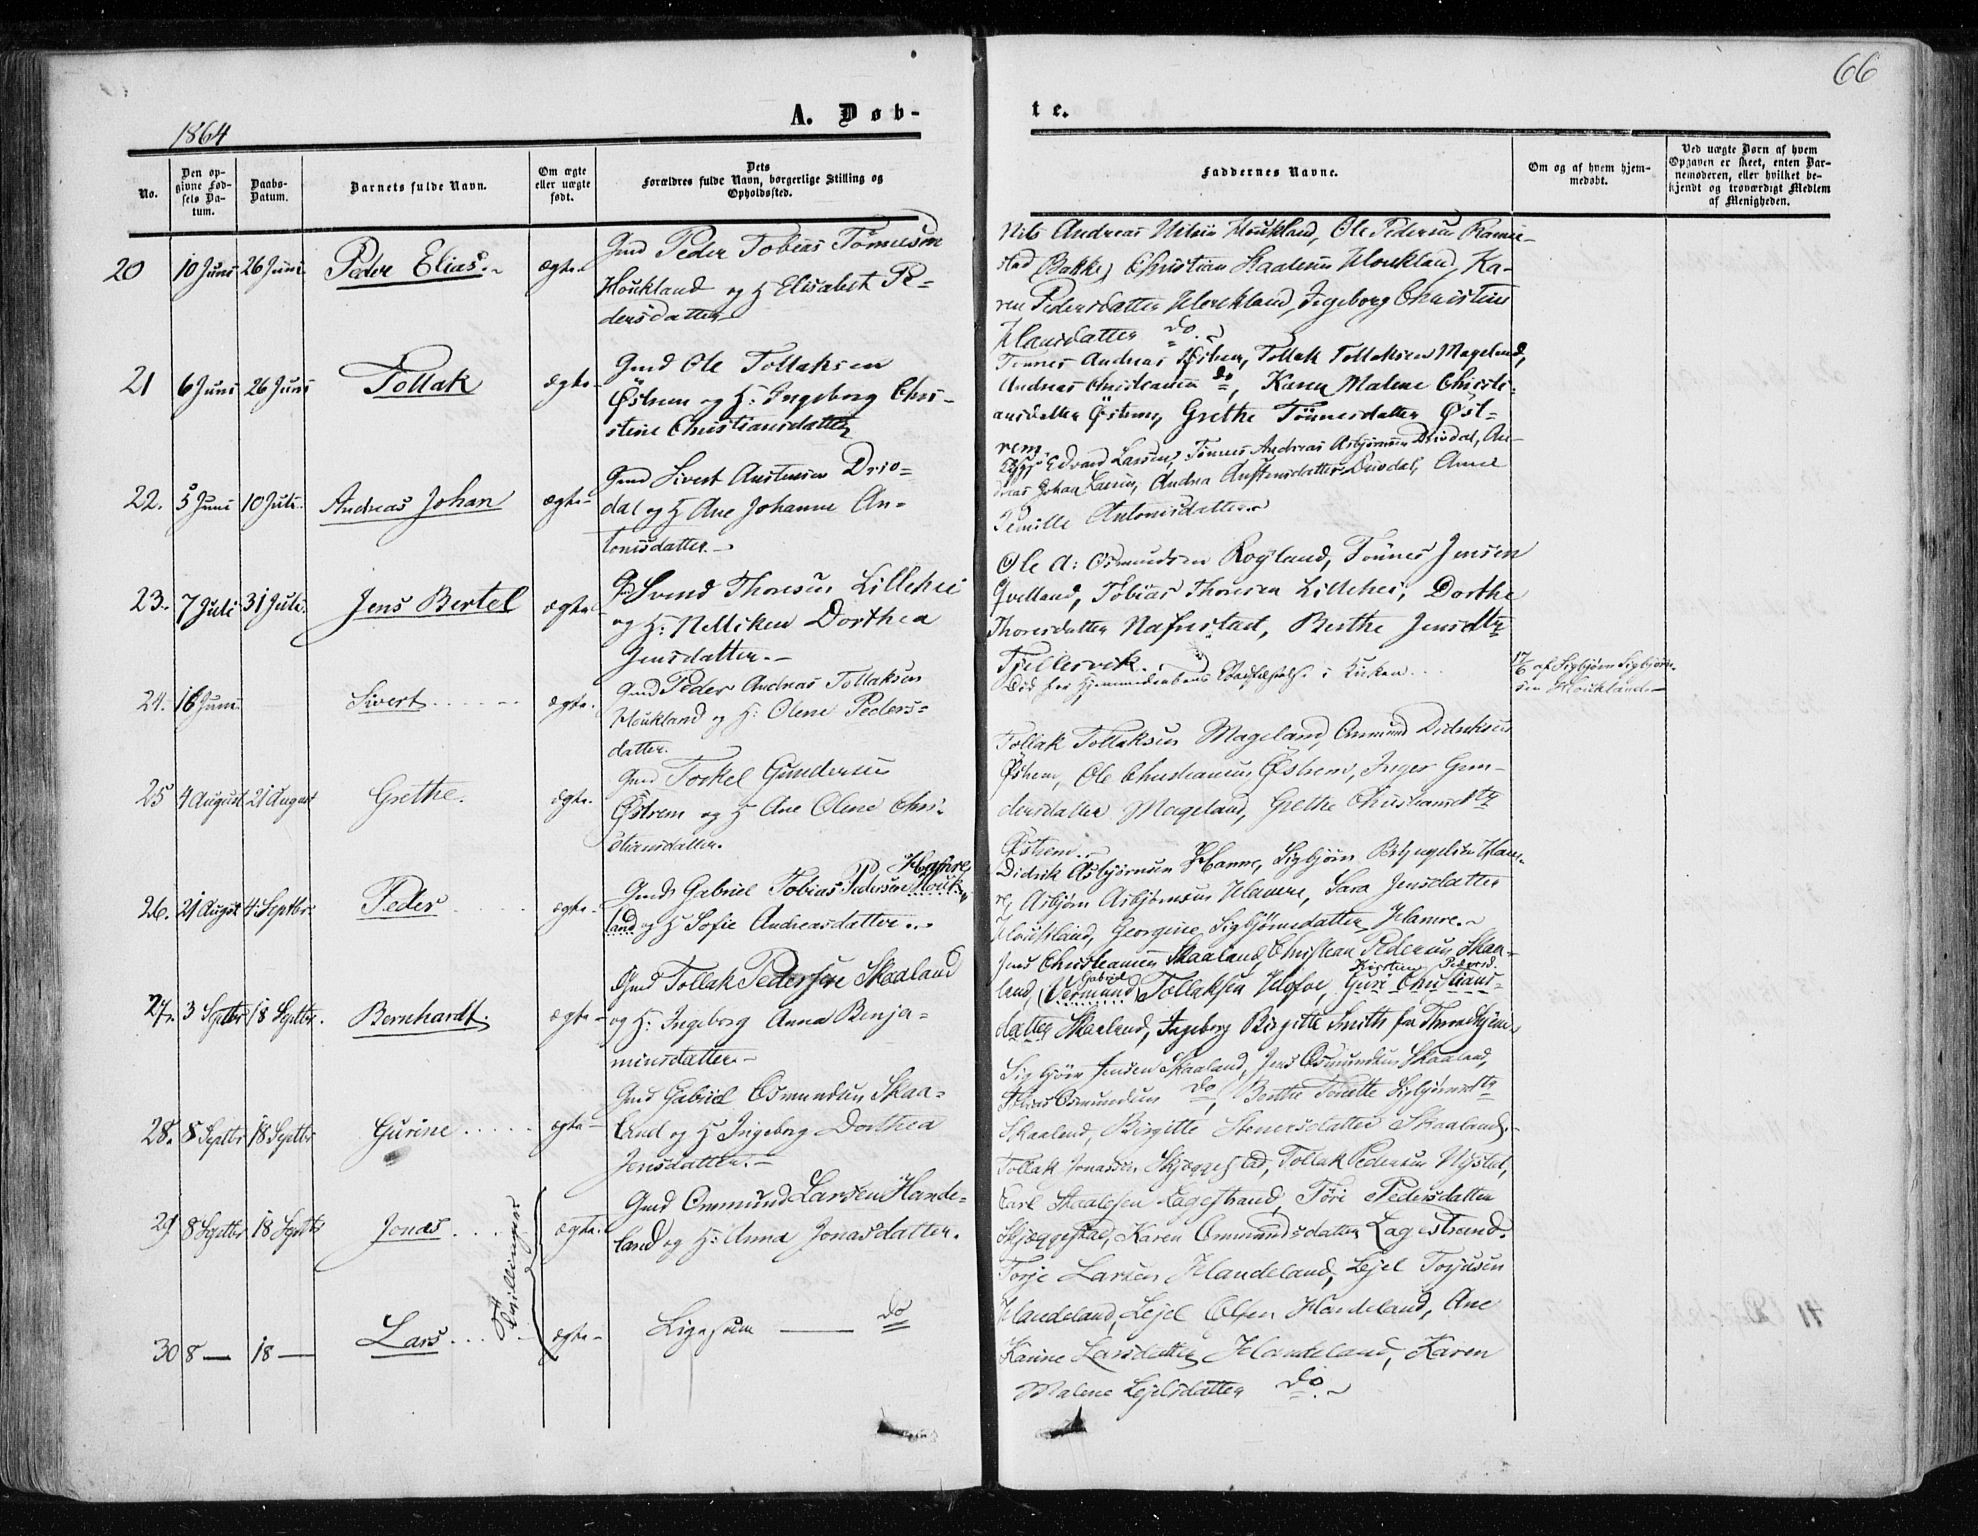 66
1864
A. Døb-
te.
No.
Den op-
givne Fød-
sels Da-
tum.
Daabs-
Datum.
Barnets fulde Navn.
Om ægte
eller uægte
født.
Dets
Forældres fulde Navn, borgerlige Stilling og
Opholdssted.
Faddernes Navne.
Om og af hvem hjem-
medøbt.
Ved uægte Børn af hvem
Opgaven er skeet, enten Bar-
nemoderen, eller hvilket be-
kjendt og troværdigt Medlem
af Menigheden.
20 10 Juni 26 Juni Peder Elias ægte
Gmd Peder Tobias Tønnesen
Houkland og H Elisabet Pe-
dersdatter
Nils Andreas Nilsen Houkland, Ole Pedersen
(Bakke) Christian Houkland, Ka-
ren Pedersdatter Houkland, Ingeborg Christine
Hansdatter do
21 6 Juni 26 Juni Tollak ægte
Gmd Ole Tollaksen
Østrem og H: Ingeborg Chri-
stine Christiansdatter
Tønnes Andreas Østrem, Tollak Tollaksen Mageland,
Andreas Christiansen do, Karen Malene Christi-
ansdatter Østrem, Grethe Tønnesdatter Øst-
rem.
22. 5 Juni 10 Juli Andreas Johan ægte
Gmd Sivert Austensen Driv-
dal og H Ane Johanne An-
tonisdatter
Edvard Larsen, Tønnes Andreas Asbjørnsen Drivdal, An-
dreas Johan Larsen, Andrea Austensdatter Drivdal, Anne
Pernille Antonisdatter
23. 7 Juli 31 Juli Jens Bertel ægte
Svend Thoresen Lillehei
og H: Nelliken Dorthea
Jensdatter.
Ole A: Osmundsen Røyland, Tønnes Jensen
Qvelland, Tobias Thoresen Lillehei, Dorthe
Thoresdatter Nafnstad, Berthe Jensdtr
Fjellervek.
24. 16 Juni Sivert ægte.
Gmd Peder Andreas Tollaksen
Houkland og H: Olene Peders-
datter.
Død før Hjemmedaabens Stadfæstelse i Kirken
17/6 af Sigbjørn Sigbjørn-
sen Houkland
25 4 August 21 August Grethe. ægte.
Gmd Torkel Gundersen
Østrem og H Ane Olene Chri-
stiansdatter.
Tollak Tollaksen Mageland, Ommund Didriksen
Østrem, Ole Christiansen Østrem, Inger Gun-
dersdatter Mageland, Grethe Christiansdtr
Østrem.
26. 21 August 4 Septbr Peder ægte
Hamre
Gmd Gabriel Tobias Pedersen Houk-
land og H Sofie Andreasdatter.
Didrik Asbjørnsen Hamre, Sigbjørn Ham-
re, Asbjørn Asbjørnsen Hamre, Sara Jensdatter
Houkland, Georgine Sigbjørnsdatter Hamre.
27. 3 Septbr 18 Septbr. Bernhardt. ægte
Gmd Tollak Pedersen Skaaland
og H: Ingeborg Anna Benja-
minsdatter
Jens Christiansen Skaaland, Christian Pedersen Skaa-
Gabriel Kirsten Pedersd.
land, (Ommund) Tollaksen Hofve, Guri Christians-
datter Skaaland, Ingeborg Birgitte Smith fra
28. 8 Septbr 18 Septbr Gurine ægte
Gmd Gabriel Osmundsen Skaa-
land og H Ingeborg Dorthea
Jensdatter.
Sigbjørn Jensen Skaaland, Jens Osmundsen Skaaland,
Osmundsen do, Berthe Tonette Sigbjørnsdtr
Skaaland, Birgitte Stenersdatter Skaaland
29 8 Septbr 18 Septbr Jonas ægte
Gmd Ommund Larsen Hande-
land og H: Anna Jonasdatter.
Tollak Jonassen Skjeggestad, Tollak Pedersen Nystøl,
Carl Lagestrand, Tóri Pedersdatter
Skjeggestad, Karen Ommundsdatter Lagestrand.
Tvillinger
30 8 — 18 — Lars ægte
Ligesom — do
Torje Larsen Handeland, Lejel Torjusen
Handeland, Lejel Olsen Handeland, Ane
Karine Larsdatter Handeland, Karen
Malene Lejelsdatter do